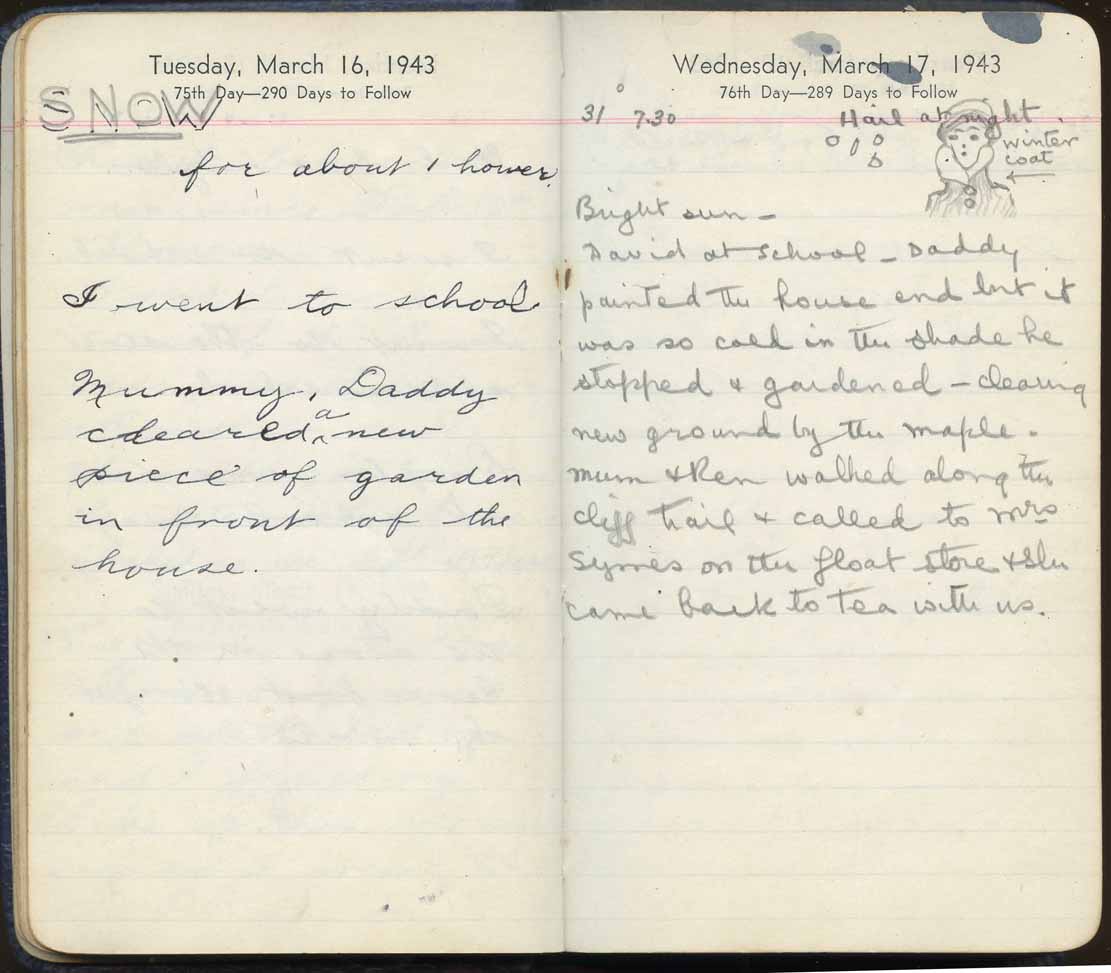 Tuesday, March 16, 1943
75th Day—290 Days to Follow
SNOW
for about 1 hower.
I went to school
Mummy, Daddy
cleared a new
piece of garden
in front of the
house.
Wednesday, March 17, 1943
76th Day—289 Days to Follow
31° 7.30 Hail at night.
winter
coat
Bright sun –
David at school – Daddy
painted the house end but it
was so cold in the shade he
stopped & gardened – clearing
new ground by the maple.
Mum & Ren walked along the
cliff trail & called to Mrs
Symes on the float store & she
came back to tea with us.